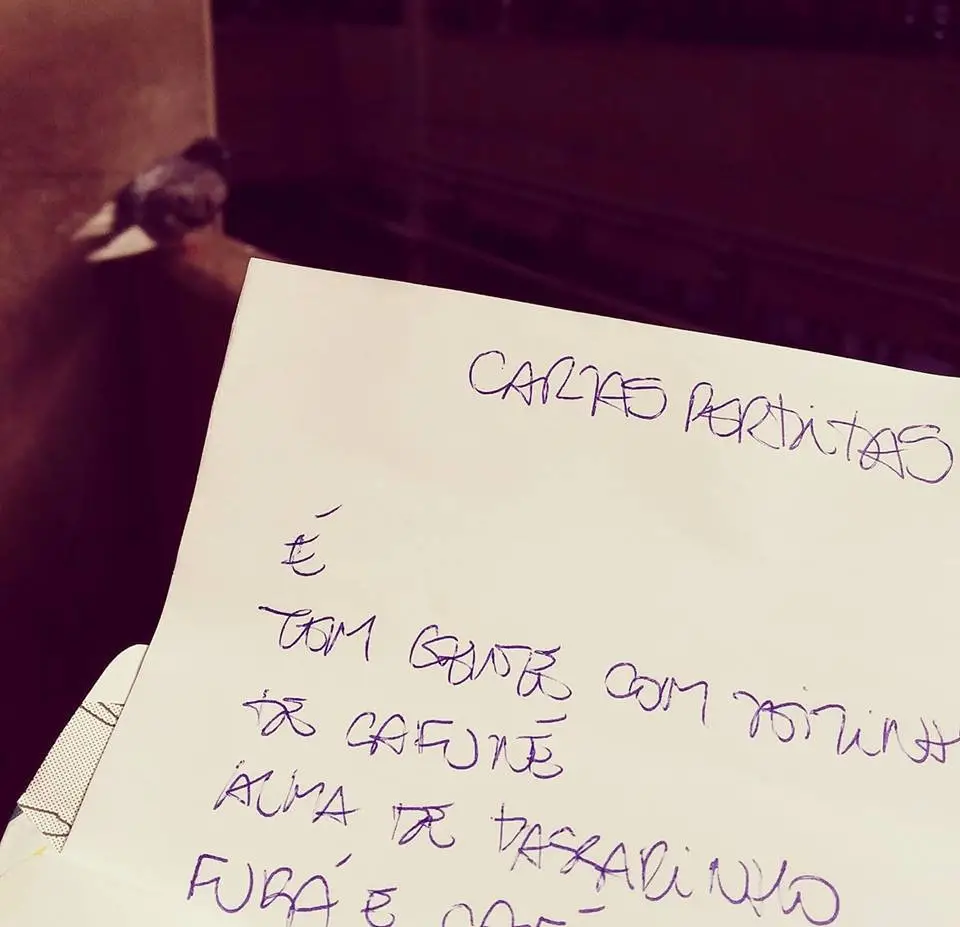 CARTAS PERDIDAS
É
TEM GENTE COM JEITINH
DE CAFUNÉ
ALMA DE PASSARINHO
FUBÁ E CAFÉ